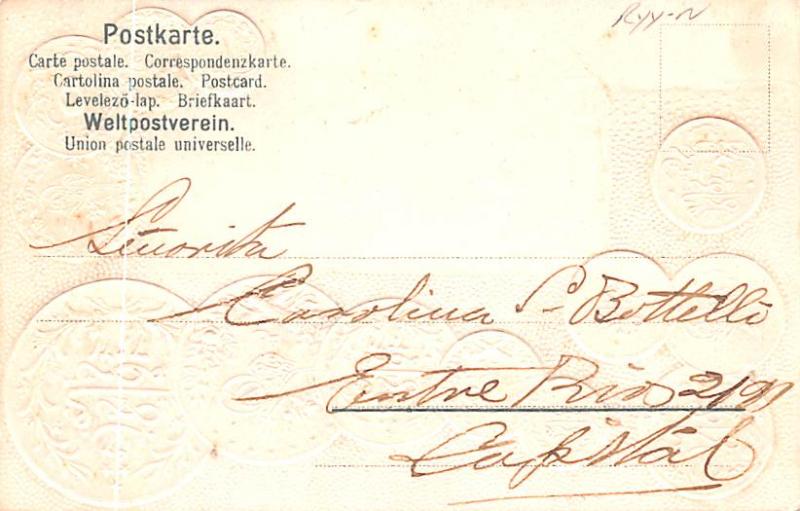 Postkarte.
Carte postale. Correspondenzkarte.
Cartolina postale. Postcard.
Levelező-lap. Briefkaart.
Weltpostverein.
Union postale universelle.
Señorita
Carolina S- Bottelli
Entre Rios
Capital